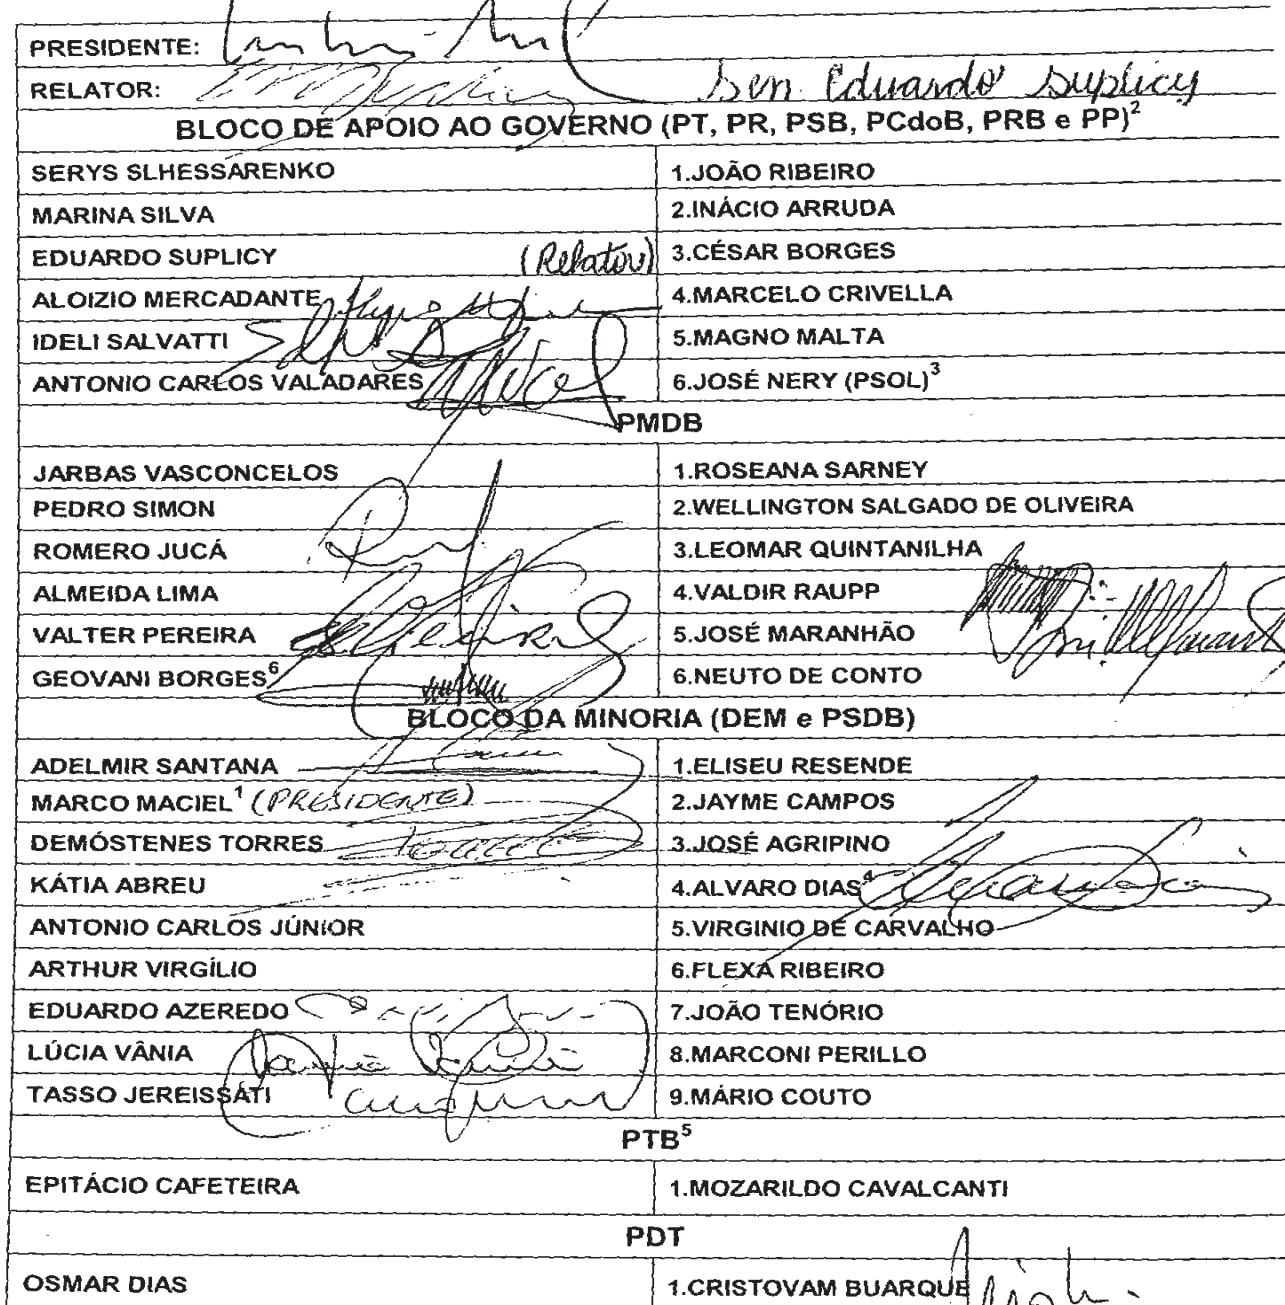 PRESIDENTE:
RELATOR: Sen Eduardo Suplicy
BLOCO DE APOIO AO GOVERNO (PT, PR, PSB, PCdoB, PRB e PP)²
SERYS SLHESSARENKO 1.JOÃO RIBEIRO
MARINA SILVA 2.INÁCIO ARRUDA
EDUARDO SUPLICY (Relator) 3.CÉSAR BORGES
ALOIZIO MERCADANTE 4.MARCELO CRIVELLA
IDELI SALVATTI 5.MAGNO MALTA
ANTONIO CARLOS VALADARES 6.JOSÉ NERY (PSOL)³
PMDB
JARBAS VASCONCELOS 1.ROSEANA SARNEY
PEDRO SIMON 2.WELLINGTON SALGADO DE OLIVEIRA
ROMERO JUCÁ 3.LEOMAR QUINTANILHA
ALMEIDA LIMA 4.VALDIR RAUPP
VALTER PEREIRA 5.JOSÉ MARANHÃO
GEOVANI BORGES⁶ 6.NEUTO DE CONTO
BLOCO DA MINORIA (DEM e PSDB)
ADELMIR SANTANA 1.ELISEU RESENDE
MARCO MACIEL¹ (PRESIDENTE) 2.JAYME CAMPOS
DEMÓSTENES TORRES 3.JOSÉ AGRIPINO
KÁTIA ABREU 4.ALVARO DIAS⁴
ANTONIO CARLOS JÚNIOR 5.VIRGINIO DE CARVALHO
ARTHUR VIRGÍLIO 6.FLEXA RIBEIRO
EDUARDO AZEREDO 7.JOÃO TENÓRIO
LÚCIA VÂNIA 8.MARCONI PERILLO
TASSO JEREISSATI 9.MÁRIO COUTO
PTB⁵
EPITÁCIO CAFETEIRA 1.MOZARILDO CAVALCANTI
PDT
OSMAR DIAS 1.CRISTOVAM BUARQUE